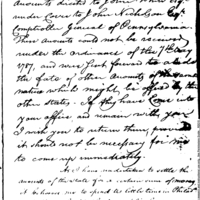 accounts directed to John White Esqr
under cover to John Nicholson Esqr
Comptroller General of Pennsylvania.
These accounts could not be received
under the ordinance of the 7th May
1787, and were sent forward to abide
the fate of other accounts of the same
nature which might be offered by the
other states. If they have come into
your office, and remain with you
I wish you to return them, provided
it should not be necessary for me
to come up immediately.
As I have no direction to settle the
accounts of the state for a certain sum of money
it behoves me to spend as little time in Philad